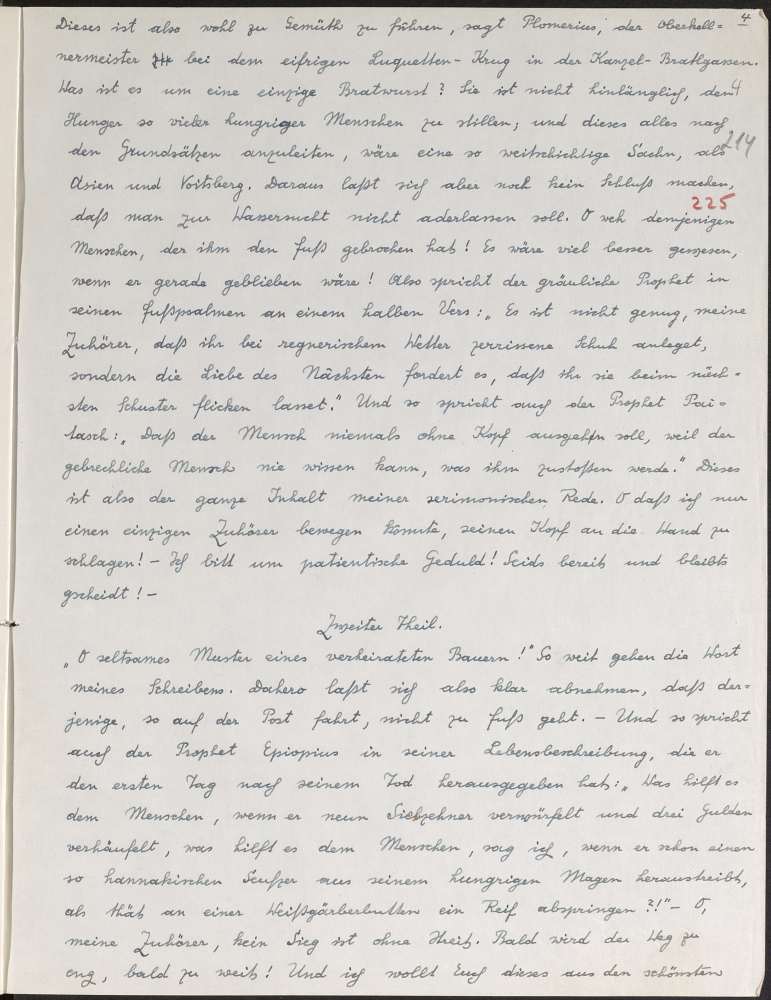 4
Dieses ist also wohl zu Gemüth zu führen, sagt Plomerius, der Oberkell-
nermeister bei dem eifrigen Luquetten-Krug in der Kanzel-Brathgassen.
Was ist es um eine einzige Bratwurst? Sie ist nicht hinlänglich, den
4
Hunger so vieler hungriger Menschen zu stillen; und dieses alles nach
den Grundsätzen anzuleiten, wäre eine so weitschichtige Sachn, als
214
Asien und Voitsberg. Daraus laßt sich aber noch kein Schluß machen,
225
daß man zur Wassersucht nicht aderlassen soll. O weh demjenigen
Menschen, der ihm den Fuß gebrochen hat! Es wäre viel besser gewesen,
wenn er gerade geblieben wäre! Also spricht der gräuliche Prophet in
seinen Fußpsalmen an einem halben Vers: „Es ist nicht genug, meine
Zuhörer, daß ihr bei regnerischem Wetter zerrissene Schuh anleget,
sondern die Liebe des Nächsten fordert es, daß ihr sie beim näch-
sten Schuster flicken lasset." Und so spricht auch der Prophet Pai-
tasch: „Daß der Mensch niemals ohne Kopf ausgehn soll, weil der
gebrechliche Mensch nie wissen kann, was ihm zustoßen werde." Dieses
ist also der ganze Inhalt meiner serimonischen Rede. O daß ich nur
einen einzigen Zuhörer bewegen könnte, seinen Kopf an die Wand zu
schlagen! – Ich bitt um patientische Geduld! Seids bereit und bleibts
gscheidt! –
Zweiter Theil.
„O seltsames Muster eines verheirateten Bauern!" So weit gehen die Wort
meines Schreibens. Dahero laßt sich also klar abnehmen, daß der-
jenige, so auf der Post fahrt, nicht zu Fuß geht. – Und so spricht
auch der Prophet Epiopius in seiner Lebensbeschreibung, die er
den ersten Tag nach seinem Tod herausgegeben hat: „Was hilft es
dem Menschen, wenn er neun Siebzehner verwürfelt und drei Gulden
verhäufelt, was hilft es dem Menschen, sag ich, wenn er schon einen
so hannakischen Seufzer aus seinem hungrigen Magen heraustreibt,
als thät an einer Weißgärberbutten ein Reif abspringen?!" – O,
meine Zuhörer, kein Sieg ist ohne Streit. Bald wird der Weg zu
eng, bald zu weit! Und ich wollt Euch dieses aus den schönsten